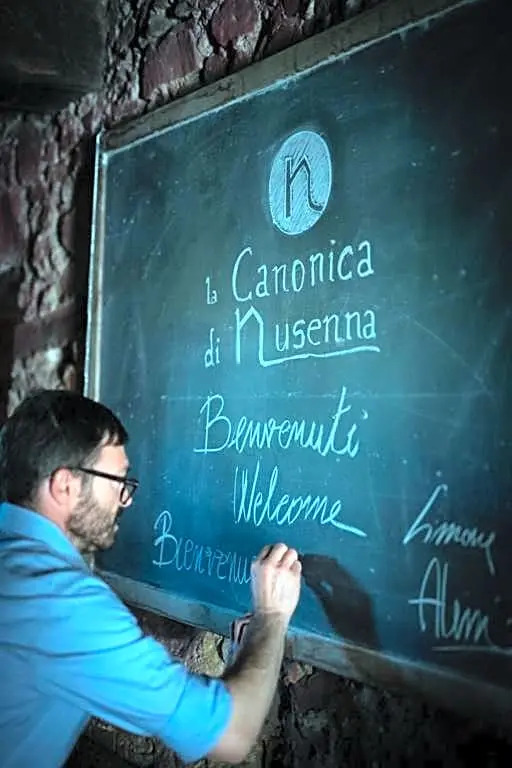 n
la Canonica
di Nusenna
Benvenuti
Welcome
Bienvenu
Simone